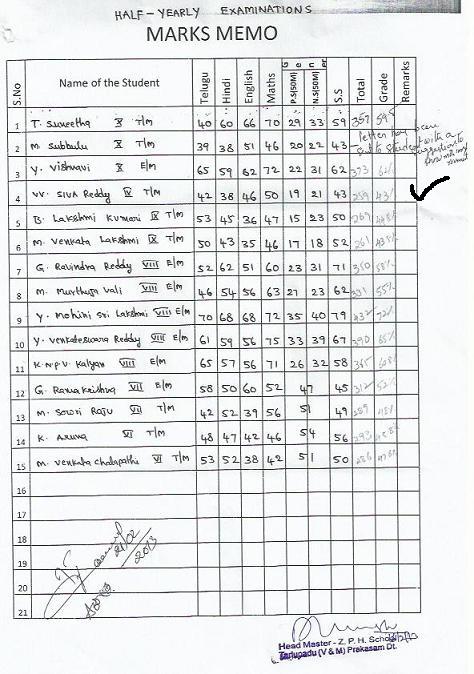 HALF-YEARLY EXAMINATIONS
MARKS MEMO
S.No Name of the Student Telugu Hindi English Maths P.S(50M) N.S(50M) S.S Total Grade Remarks
1 T. Suneetha X T/M 40 60 66 70 29 33 59 357 59.5
2 M. Subbulu X T/M 39 38 51 46 20 22 43
3 Y. Vishnavi X E/M 65 59 62 72 22 31 62 373
4 VV. SIVA Reddy IX T/M 42 38 46 50 19 21 43 259
5 B. Lakshmi Kumari IX T/M 53 45 36 47 15 23 50 269
6 M. Venkata Lakshmi IX T/M 50 43 35 46 17 18 52 261
7 G. Ravindra Reddy VIII E/M 52 62 51 60 23 31 71 350 58%
8 M. Murthuja Vali VIII E/M 46 54 56 63 27 23 62 331 55%
9 Y. Mohini Sri Lakshmi VIII E/M 70 68 68 72 35 40 79 432 72%
10 Y. Venkateswara Reddy VIII E/M 61 59 56 75 33 39 67 390 65%
11 K.N.P.V. Kalyan VIII E/M 65 57 56 71 26 32 58 365
12 G. Rama Krishna VII E/M 58 50 60 52 47 45 312 52%
13 M. Sowri Raju VII T/M 42 52 39 56 51 49 289 48%
14 K. Aruna VI T/M 48 47 42 46 54 56 293
15 M. Venkata Chalapathi VI T/M 53 52 38 42 51 50 286
16
17
18
19
20
21
21/02
2013
Head Master - Z. P. H. School
Tarlupadu (V & M) Prakasam Dt.